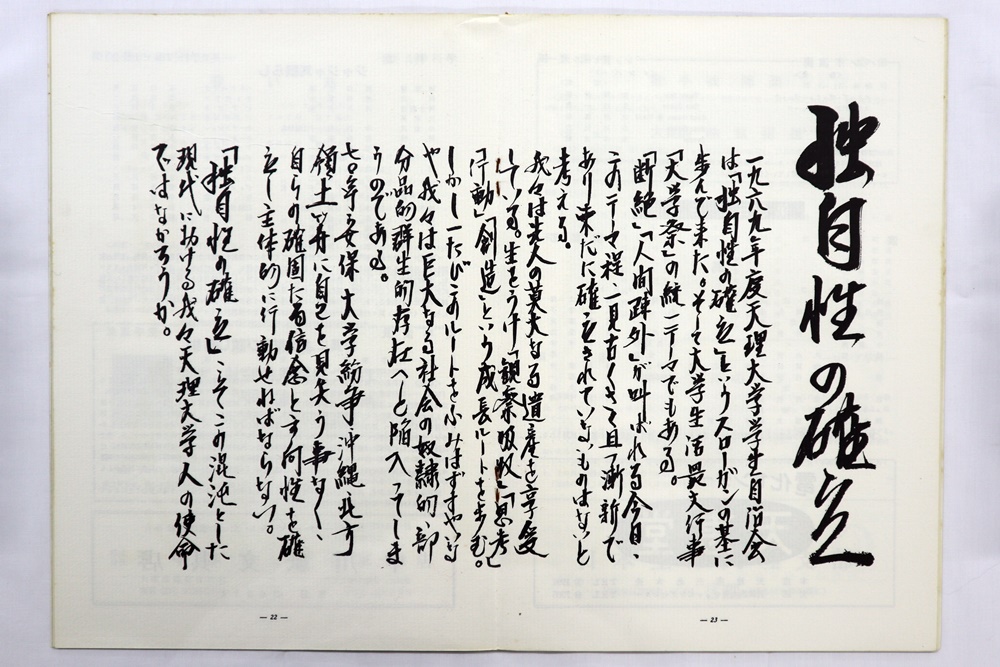 独自性の確立
一九六九年度天理大学学生自治会
は「独自性の確立」というスローガンの基に
歩んで来た。そして大学生活最大行事
「大学祭」の統一テーマでもある。
「断絶」「人間疎外」が叫ばれる今日、
このテーマ程、一見古くさくて且「漸新で
あり未だに確立されていないものはないと
考える。
我々は先人の莫大なる遺産を享受
している。生をうけ「観察」「吸収」「思考」
「行動」「創造」という成長ルートを歩む。
しかし一たびこのルートをふみはずすやいな
や我々は巨大なる社会の奴隷的、部
分品的群生的存在へと陥入ってしま
うのである。
七〇年安保大学紛争沖縄北方
領土、ヶ月に自己を見失う事なく、
自らの確固たる信念と方向性を確
立し主体的に行動せねばならない。
「独自性の確立」こそこの混沌とした
現代における我々天理大学人の使命
ではなかろうか。
— 22 —
— 23 —